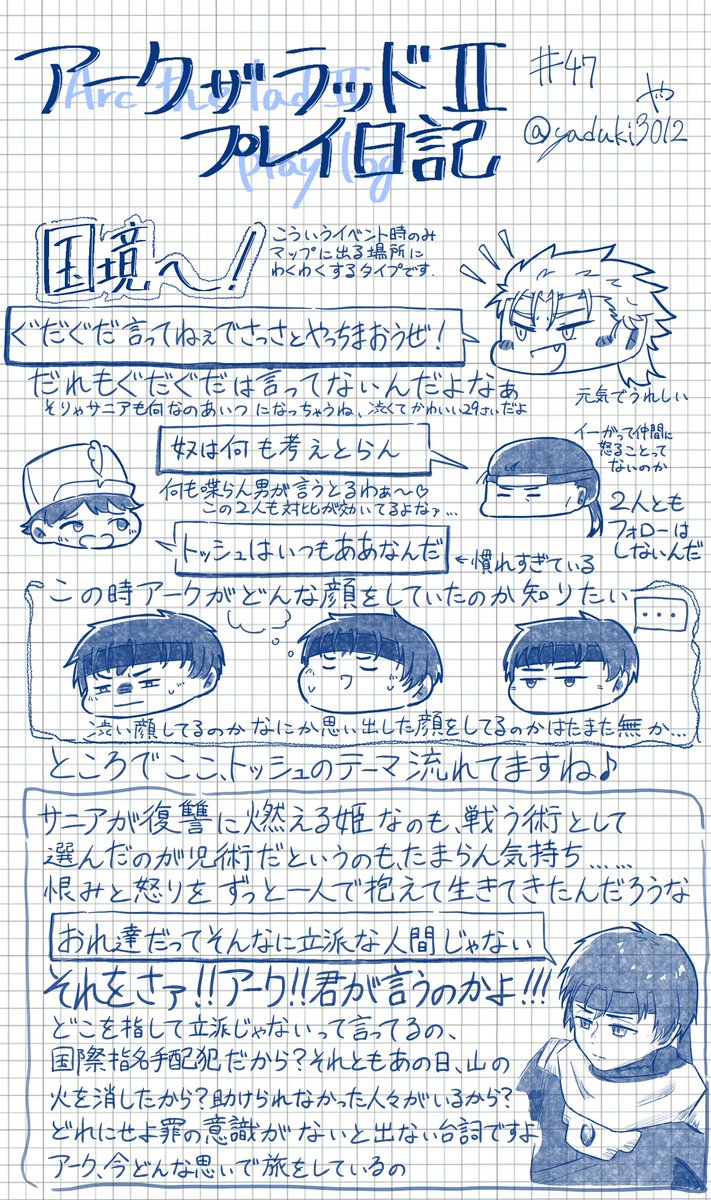 アークザラッドⅡ
Arc the lad Ⅱ
プレイ日記
play log
#47
や
@yaduki3012
国境へ!
こういうイベント時のみ
マップに出る場所に
わくわくするタイプです.
ぐだぐだ言ってねぇでさっさとやっちまおうぜ!
だれもぐだぐだは言ってないんだよなぁ
そりゃサニアも何なのあいつになっちゃうね、渋くてかわいい29さいだよ
元気でうれしい
奴は何も考えとらん
イーガって仲間に
怒ることって
ないのか
何も喋らん男が言うとるわぁ〜♡
この2人も対比が効いてるよなァ…
2人とも
フォローは
しないんだ
トッシュはいつもああなんだ
←慣れすぎている
この時アークがどんな顔をしていたのか知りたい
...
渋い顔してるのかなにか思い出した顔をしてるのかはたまた無か…
ところでここ、トッシュのテーマ流れてますね♪
サニアが復讐に燃える姫なのも、戦う術として
選んだのが呪術だというのも、たまらん気持ち……
恨みと怒りをずっと一人で抱えて生きてきたんだろうな
おれ達だってそんなに立派な人間じゃない
それをさァ!!アーク!!君が言うのかよ!!!
どこを指して立派じゃないって言ってるの、
国際指名手配犯だから?それともあの日、山の
火を消したから?助けられなかった人々がいるから?
どれにせよ罪の意識がないと出ない台詞ですよ
アーク、今どんな思いで旅をしているの